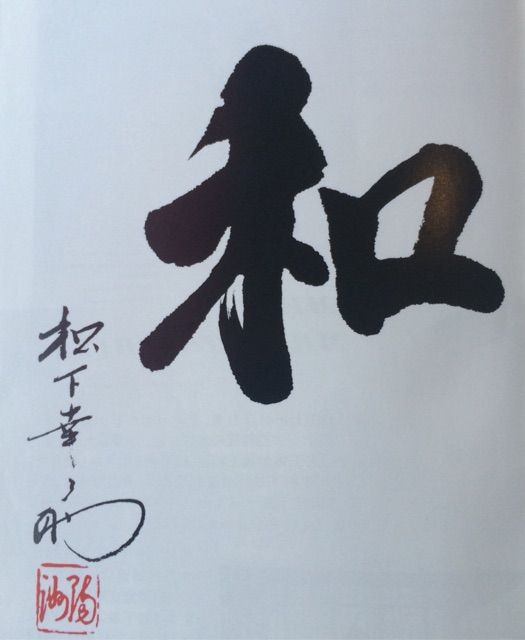 和
松下幸之助